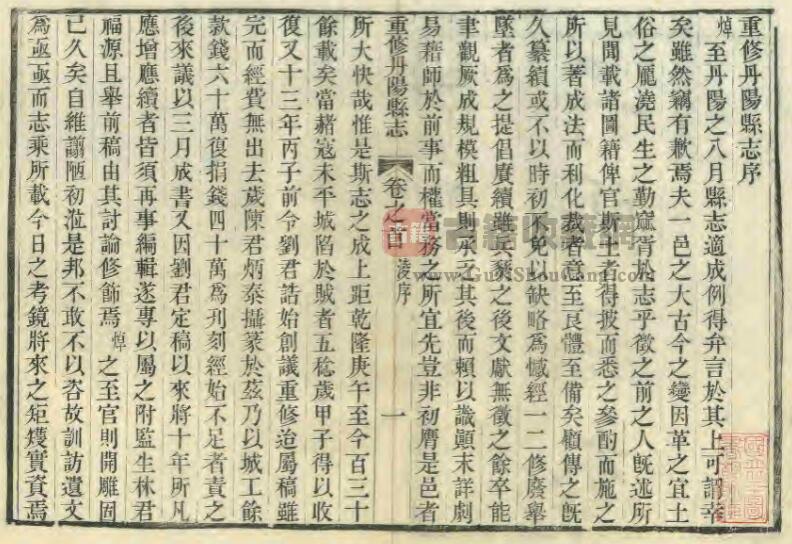 重修丹陽縣志序
焯至丹陽之八月縣志適成例得弁言於其上可謂幸
矣雖然竊有歉焉夫一邑之大古今之變因革之宜土
俗之龐澆民生之勤窳胥於志乎徵之前之人旣述所
見聞載諸圖籍俾官斯土者得披而悉之參酌而施之
所以著成法而利化裁者意至良體至備矣顧傳之旣
久纂續或不以時初不免以缺略為憾經一二修廢舉
墜者為之提倡賡續雖兵燹之後文獻無徵之餘卒能
聿觀厥成規模粗具則承乎其後而賴以識顚末詳劇
易藉師於前事而權當務之所宜先豈非初膺是邑者
重修丹陽縣志
卷之首
淩序
一
所大快哉惟是斯志之成上距乾隆庚午至今百三十
餘載矣當赭寇未平城陷於賊者五稔歲甲子得以收
復又十三年丙子前令劉君誥始創議重修迨屬稿雖
完而經費無出去歲陳君炳泰攝篆於茲乃以城工餘
款錢六十萬復捐錢四十萬為刋刻經始不足者責之
後來議以三月成書又因劉君定稿以來將十年所凡
應增應續者皆須再事編輯遂專以屬之附監生林君
福源且舉前稿由其討論修飾焉焯之至官則開雕固
已久矣自維謭陋初涖是邦不敢不以咨故訓訪遺文
為亟亟而志乘所載今日之考鏡將來之矩矱實資焉
古籍收藏網
www.GuJiShouCang.com